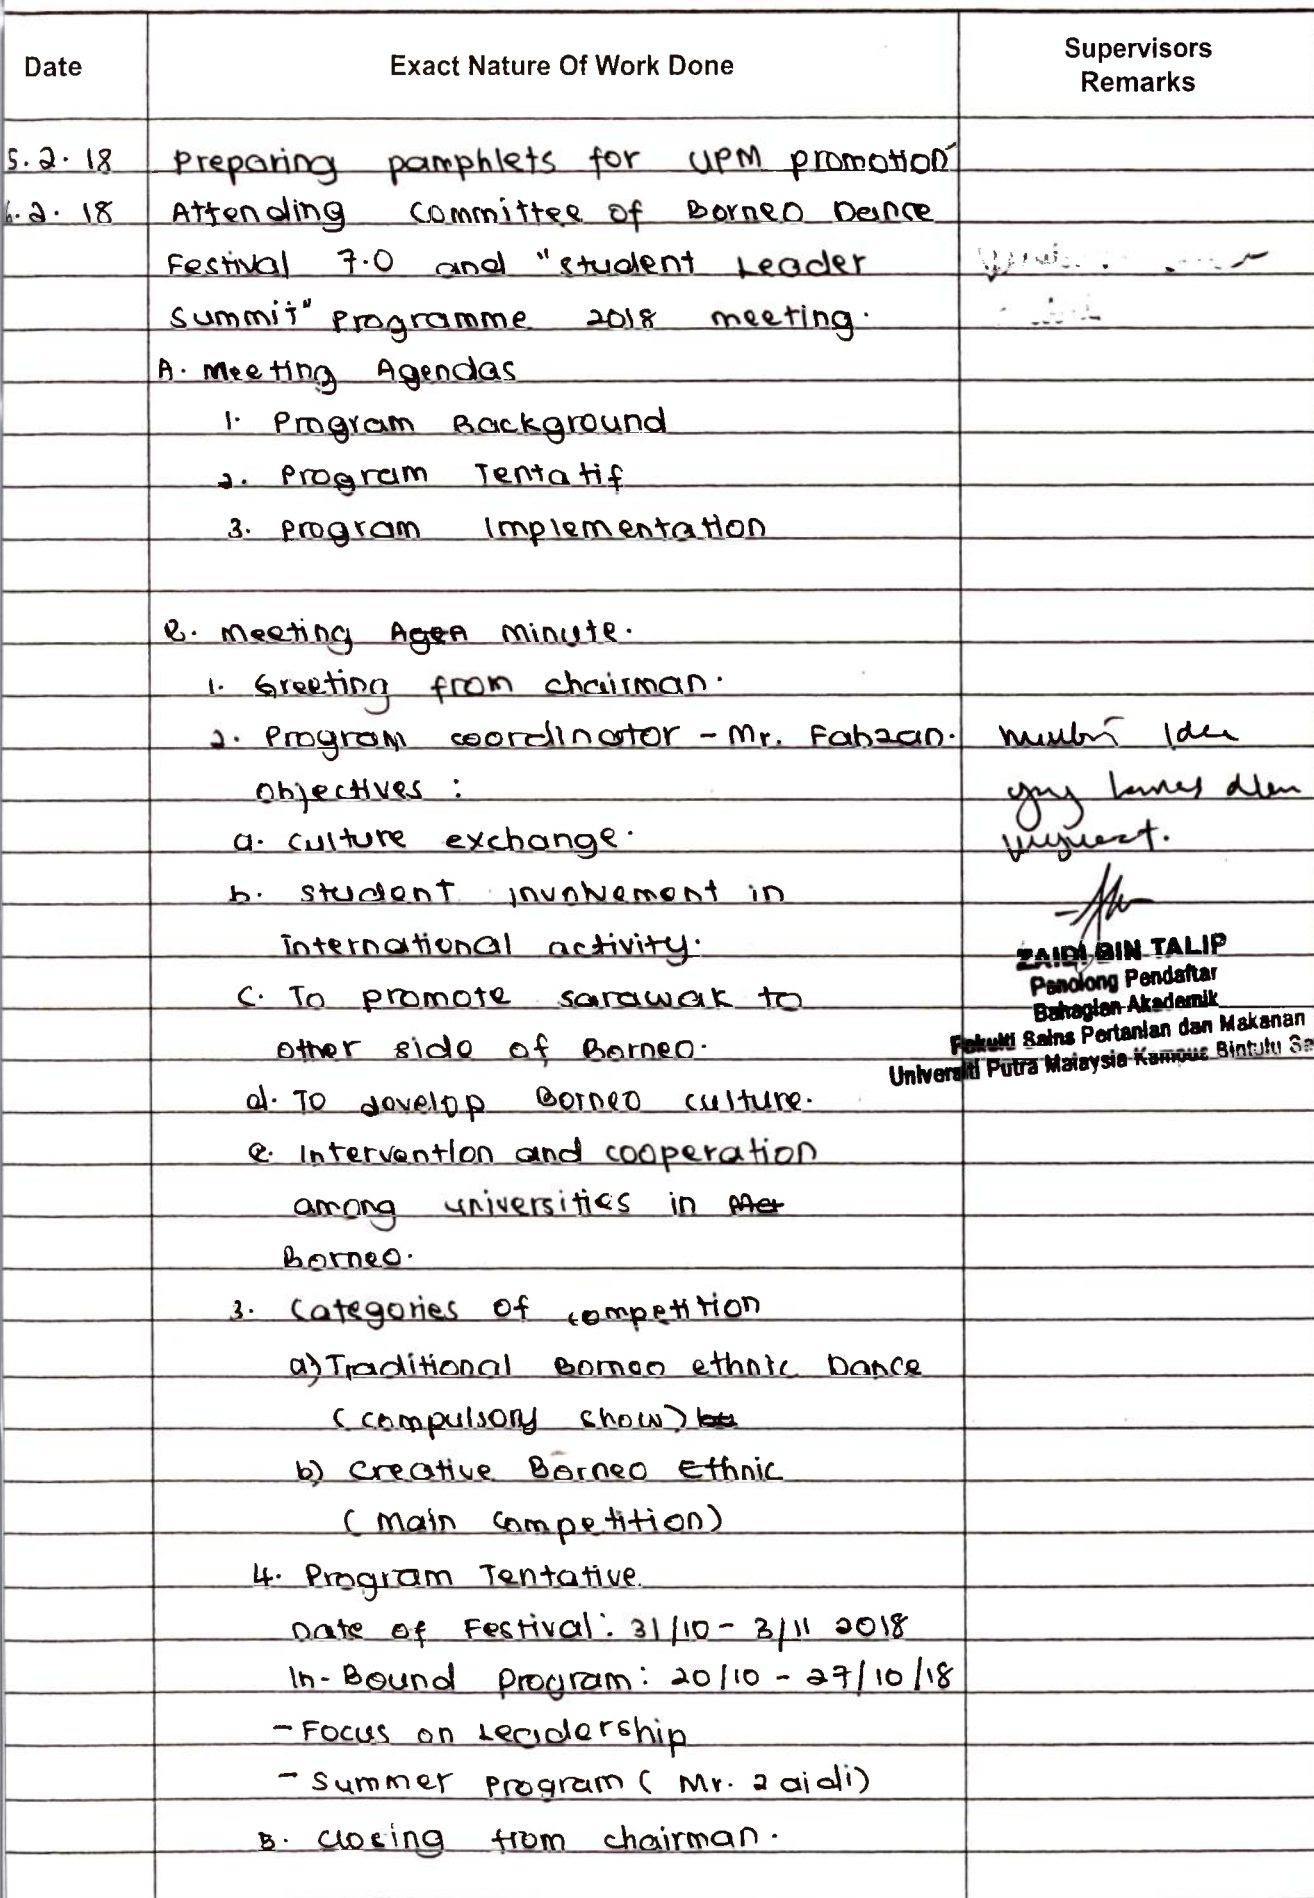 Date Exact Nature Of Work Done Supervisors Remarks
5.2.18 Preparing pamphlets for UPM promotion
6.2.18 Attending committee of Borneo Dance
Festival 7.0 and "Student Leader
Summit" Programme 2018 meeting.
A. Meeting Agendas
1. Program Background
2. Program Tentatif
3. Program Implementation
B. Meeting Agen Minute.
1. Greeting from chairman.
2. Program coordinator - Mr. Fahzan.
objectives :
a. culture exchange.
b. student involvement in
international activity.
c. To promote sarawak to
other side of Borneo.
d. To develop Borneo culture.
e. Intervention and cooperation
among universities in
Borneo.
3. Categories of competition
a) Traditional Borneo ethnic Dance
(compulsory show)
b) Creative Borneo Ethnic
(main competition)
4. Program Tentative
Date of Festival: 31/10 - 3/11 2018
In-Bound program: 20/10 - 27/10/18
- Focus on Leadership
- Summer program (Mr. Zaidi)
5. closing from chairman.
ZAIDI BIN TALIP
Penolong Pendaftar
Bahagian Akademik
Fakulti Sains Pertanian dan Makanan
Universiti Putra Malaysia Kampus Bintulu